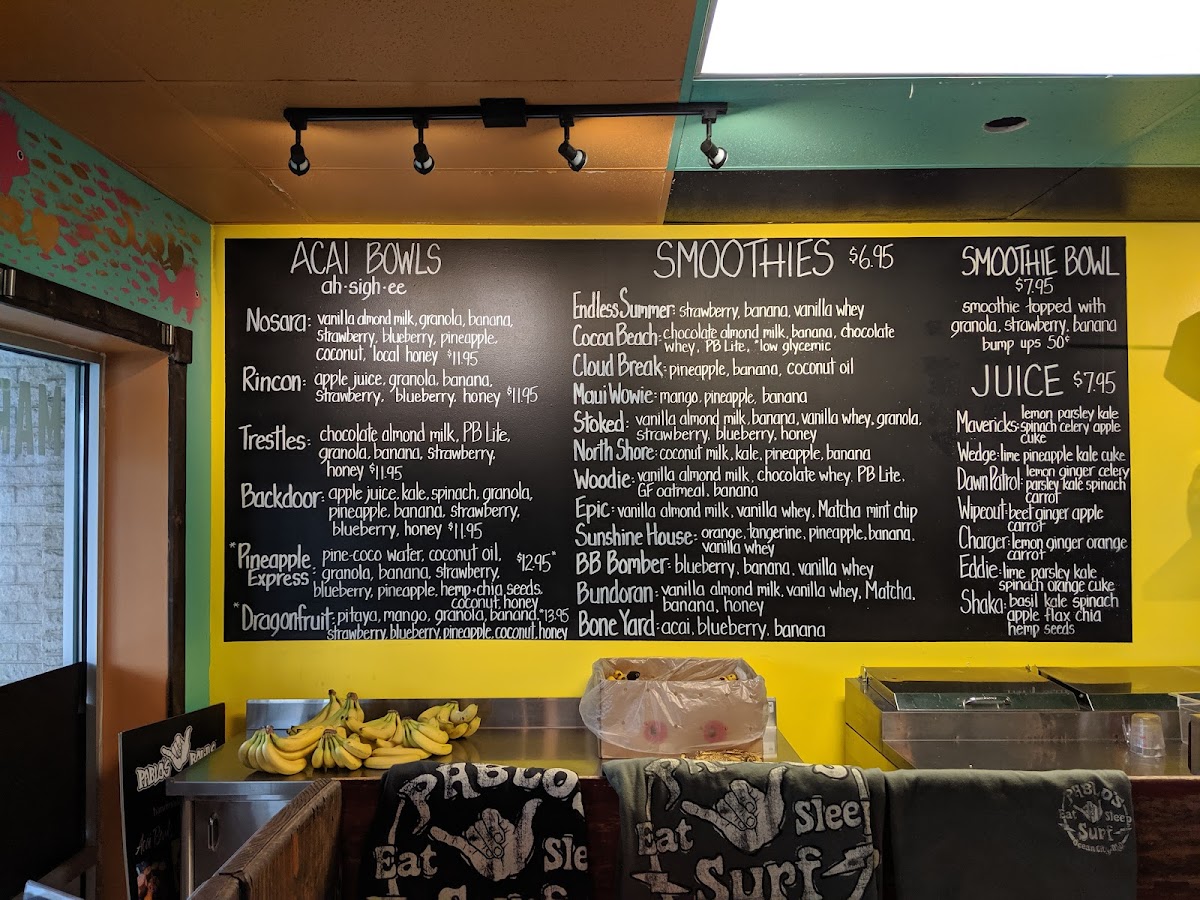 ACAI BOWLS
ah·sigh·ee
Nosara: vanilla almond milk, granola, banana,
strawberry, blueberry, pineapple,
coconut, local honey $11.95
Rincon: apple juice, granola, banana,
strawberry, blueberry, honey $11.95
Trestles: chocolate almond milk, PB Lite,
granola, banana, strawberry,
honey $11.95
Backdoor: apple juice, kale, spinach, granola,
pineapple, banana, strawberry,
blueberry, honey $11.95
*Pineapple Express: pine-coco water, coconut oil, $12.95*
granola, banana, strawberry,
blueberry, pineapple, hemp+chia seeds,
coconut, honey
*Dragonfruit: pitaya, mango, granola, banana, *13.95
strawberry, blueberry, pineapple, coconut, honey
SMOOTHIES $6.95
Endless Summer: strawberry, banana, vanilla whey
Cocoa Beach: chocolate almond milk, banana, chocolate
whey, PB Lite, *low glycemic
Cloud Break: pineapple, banana, coconut oil
Maui Wowie: mango, pineapple, banana
Stoked: vanilla almond milk, banana, vanilla whey, granola,
strawberry, blueberry, honey
North Shore: coconut milk, kale, pineapple, banana
Woodie: vanilla almond milk, chocolate whey, PB Lite,
GF oatmeal, banana
Epic: vanilla almond milk, vanilla whey, Matcha mint chip
Sunshine House: orange, tangerine, pineapple, banana,
vanilla whey
BB Bomber: blueberry, banana, vanilla whey
Bundoran: vanilla almond milk, vanilla whey, Matcha,
banana, honey
Bone Yard: acai, blueberry, banana
SMOOTHIE BOWL
$7.95
smoothie topped with
granola, strawberry, banana
bump ups 50¢
JUICE $7.95
Mavericks: lemon parsley kale
spinach celery apple
cuke
Wedge: lime pineapple kale cuke
Dawn Patrol: lemon ginger celery
parsley kale spinach
carrot
Wipeout: beet ginger apple
carrot
Charger: lemon ginger orange
carrot
Eddie: lime parsley kale
spinach orange cuke
Shaka: basil kale spinach
apple flax chia
hemp seeds
PABLO'S
Acai Bowls
PABLO
Eat Sle
Eat Sleep
Surf
PABLO'S
Eat Sleep
Surf
Ocean City, Md